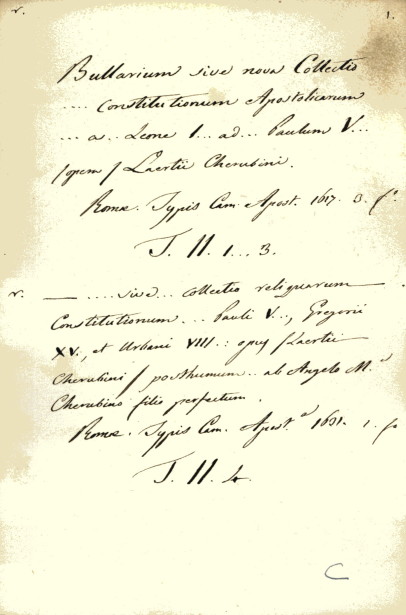 r. 1.
Bullarium sive nova Collectio
.... Constitutionum Apostolicarum
... a.. Leone I... ad... Paulum V...
/opem/ Laertii Cherubini.
Romæ. Typis Cam. Apost. 1617. 3. fo.
T. II. 1...3.
r. — ....sive.. collectio reliquarum —
Constitutionum... Pauli V..., Gregorii
XV., et Urbani VIII.: opus /Laertii
Cherubini/ posthumum.. ab Angelo M.a
Cherubino filio perfectum.
Romæ. Typis Cam. Apost.a 1631. 1. fo
T. II. 4.
C